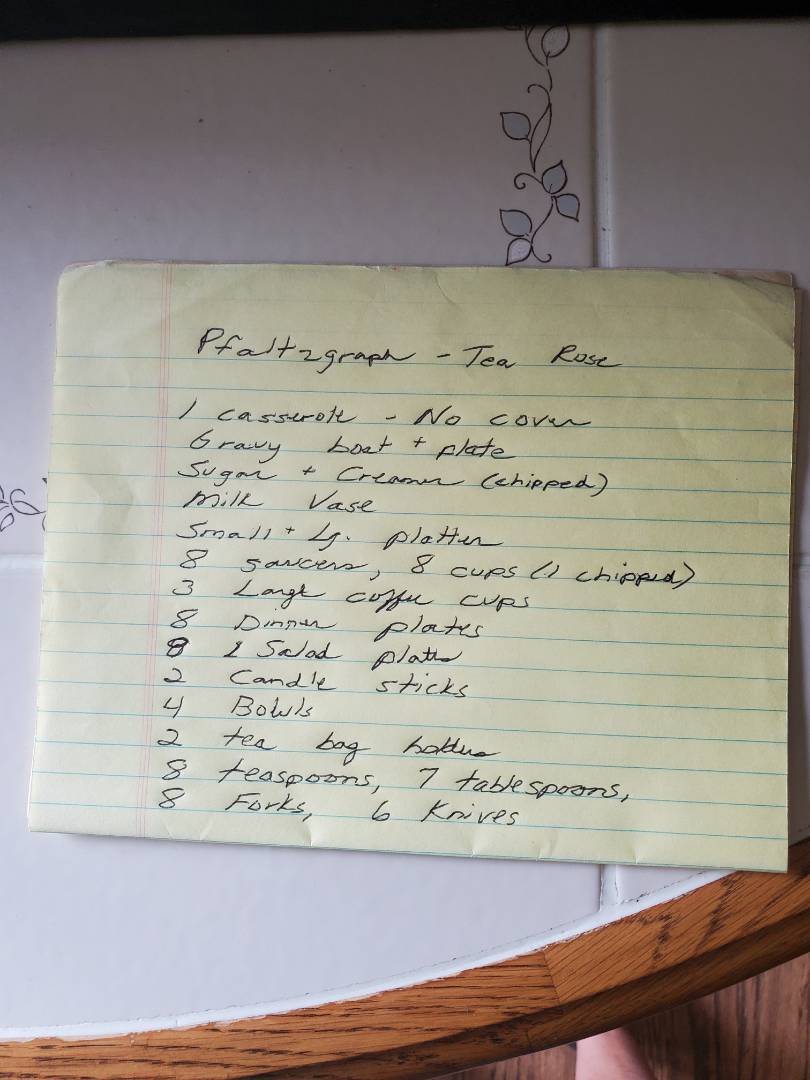 Pfaltzgraph - Tea Rose
1 casserole - No cover
Gravy boat + plate
Sugar + Creamer (chipped)
Milk Vase
Small + Lg. platter
8 saucers, 8 cups (1 chipped)
3 Large coffee cups
8 Dinner plates
8 Salad plates
2 Candle sticks
4 Bowls
2 tea bag holders
8 teaspoons, 7 tablespoons,
8 Forks, 6 Knives